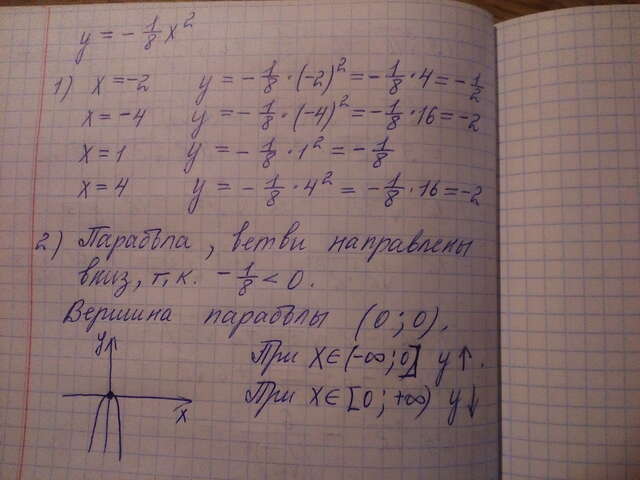 y = -1/8 x²
1) x = -2 y = -1/8 · (-2)² = -1/8 · 4 = -1/2
x = -4 y = -1/8 · (-4)² = -1/8 · 16 = -2
x = 1 y = -1/8 · 1² = -1/8
x = 4 y = -1/8 · 4² = -1/8 · 16 = -2
2) Парабола, ветви направлены
вниз, т.к. -1/8 < 0.
Вершина параболы (0; 0).
При x ∈ (-∞; 0] y↑.
При x ∈ [0; +∞) y↓
y
x